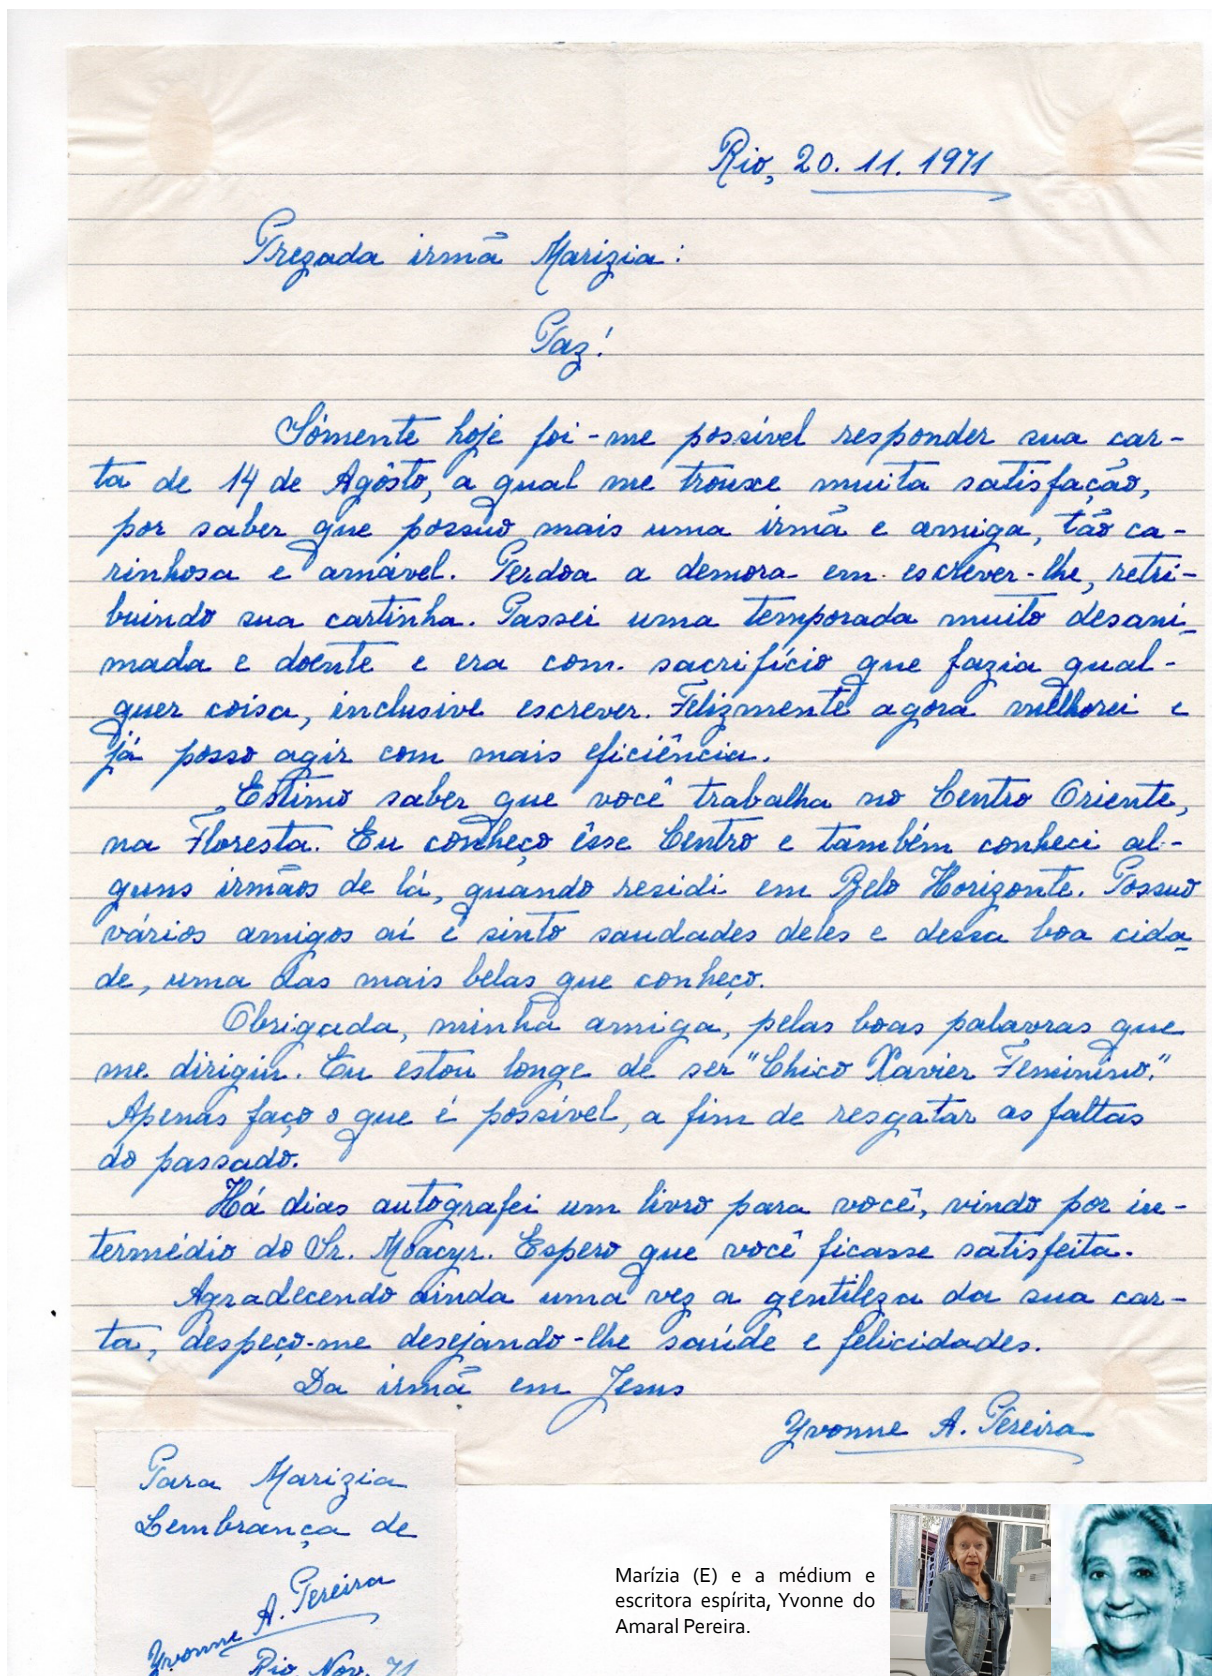 Rio, 20.11.1971
Prezada irmã Marizia:
Paz!
Sómente hoje foi-me possível responder sua car-
ta de 14 de Agôsto, a qual me trouxe muita satisfação,
por saber que possuo mais uma irmã e amiga, tão ca-
rinhosa e amável. Perdoa a demora em escrever-lhe, retri-
buindo sua cartinha. Passei uma temporada muito desani-
mada e doente e era com sacrifício que fazia qual-
quer coisa, inclusive escrever. Felizmente agora melhorei e
já posso agir com mais eficiência.
Estimo saber que você trabalha no Centro Oriente,
na Floresta. Eu conheço êsse Centro e também conheci al-
guns irmãos de lá, quando residi em Belo Horizonte. Possuo
vários amigos aí e sinto saudades deles e dessa boa cida-
de, uma das mais belas que conheço.
Obrigada, minha amiga, pelas boas palavras que
me dirigiu. Eu estou longe de ser "Chico Xavier Feminino."
Apenas faço o que é possível, a fim de resgatar as faltas
do passado.
Há dias autografei um livro para você, vindo por in-
termédio do Sr. Moacyr. Espero que você ficasse satisfeita.
Agradecendo ainda uma vez a gentileza da sua car-
ta, despeço-me desejando-lhe saúde e felicidades.
Da irmã em Jesus
Yvonne A. Pereira
Para Marizia
Lembrança de
Yvonne A. Pereira
Rio, Nov. 71
Marízia (E) e a médium e
escritora espírita, Yvonne do
Amaral Pereira.